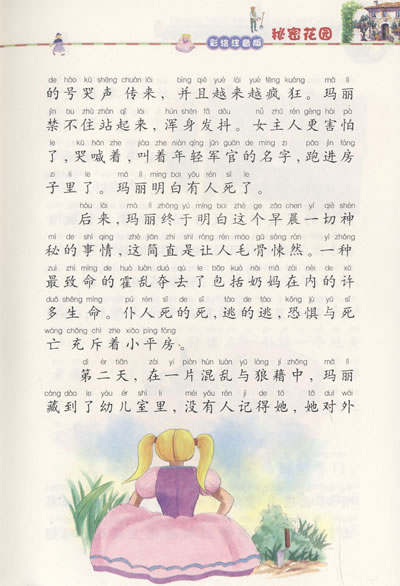 彩绘注音版 秘密花园
de háo kū shēng chuán lái bìng qiě yuè lái yuè fēng kuáng mǎ lì
的号哭声 传来, 并且越来越疯 狂。玛丽
jīn bu zhù zhàn qǐ lái hún shēn fā dǒu nǚ zhǔ rén gèng hài pà
禁不住站起来, 浑身发抖。女主人更害怕
le kū hǎn zhe jiào zhe nián qīng jūn guān de míng zi pǎo jìn fáng
了, 哭喊着, 叫着年轻军官的名字, 跑进房
zi lǐ le mǎ lì míng bai yǒu rén sǐ le
子里了。玛丽明白有人死了。
hòu lái mǎ lì zhōng yú míng bai zhè ge zǎo chen yí qiè shén
后来, 玛丽终于明白这个早晨一切神
mì de shì qing zhè jiǎn zhí shì ràng rén máo gǔ sǒng rán yì zhǒng
秘的事情, 这简直是让人毛骨悚然。一种
zuì zhì mìng de huò luàn duó qù le bāo kuò nǎi mā zài nèi de xǔ
最致命的霍乱夺去了包括奶妈在内的许
duō shēng mìng pú rén sǐ de sǐ táo de táo kǒng jù yǔ sǐ
多生命。仆人死的死, 逃的逃, 恐惧与死
wáng chōng chì zhe xiǎo píng fáng
亡 充斥着小平房。
dì èr tiān zài yí piàn hùn luàn yǔ láng jí zhōng mǎ lì
第二天, 在一片混乱与狼藉中, 玛丽
cáng dào le yòu ér shì lǐ méi yǒu rén jì de tā tā duì wài
藏到了幼儿室里, 没有人记得她, 她对外